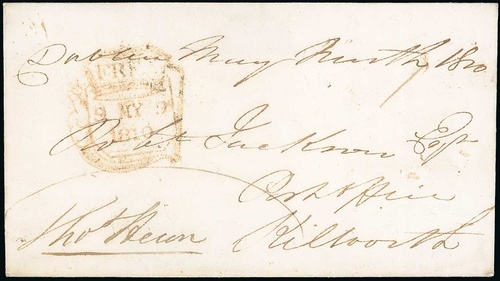 Dublin May Ninth 1810
FREE
9 MY 9
1810
Robt Jackson Esqr
Post Office
Thos
Kilworth